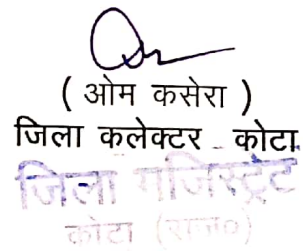 ( ओम कसेरा )
जिला कलेक्टर कोटा
जिला मजिस्ट्रेट
कोटा (राज०)